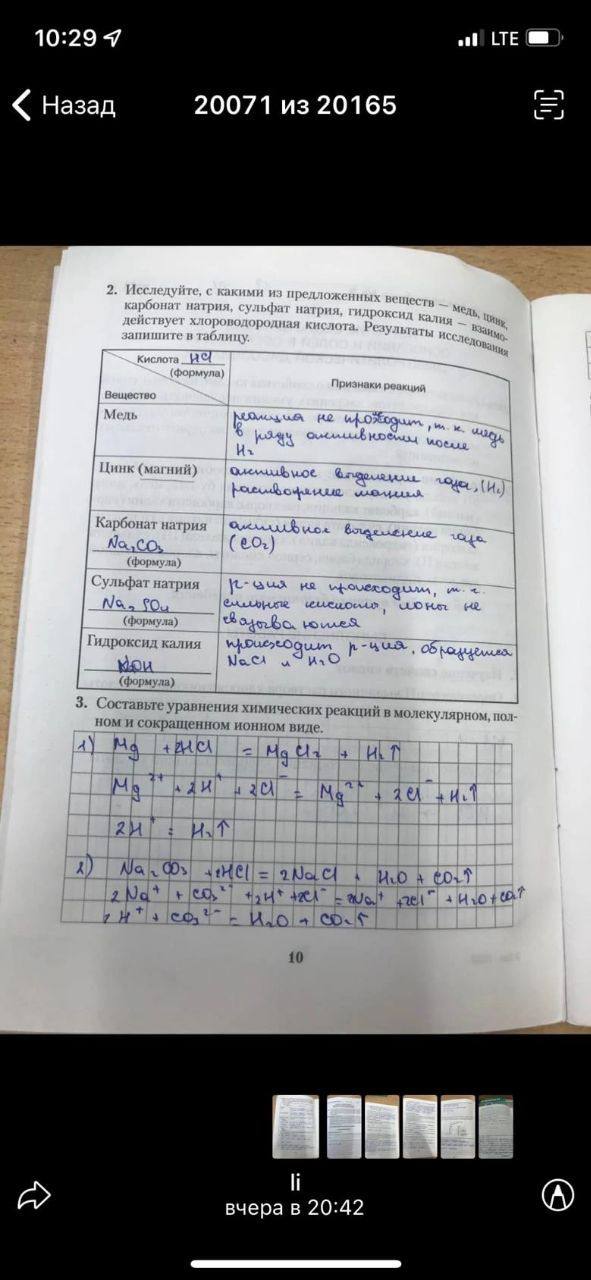 10:29
LTE
Назад
20071 из 20165
2. Исследуйте, с какими из предложенных веществ — медь, цинк,
карбонат натрия, сульфат натрия, гидроксид калия — взаимо-
действует хлороводородная кислота. Результаты исследования
запишите в таблицу.
Кислота HCl
(формула)
Вещество
Признаки реакций
Медь
реакция не проходит, т.к. медь
в ряду активности после
H₂
Цинк (магний)
активное выделение газа, (H₂)
растворение магния
Карбонат натрия
Na₂CO₃
(формула)
активное выделение газа
(CO₂)
Сульфат натрия
Na₂SO₄
(формула)
р-ция не происходит, т.к.
сильные кислоты, ионы не
связываются
Гидроксид калия
(формула)
происходит р-ция, образуется
NaCl и H₂O
3. Составьте уравнения химических реакций в молекулярном, пол-
ном и сокращенном ионном виде.
1) Mg + 2HCl = MgCl₂ + H₂↑
Mg²⁺ + 2H⁺ + 2Cl⁻ = Mg²⁺ + 2Cl⁻ + H₂↑
2H⁺ = H₂↑
2) Na₂CO₃ + 2HCl = 2NaCl + H₂O + CO₂↑
2Na⁺ + CO₃²⁻ + 2H⁺ + 2Cl⁻ = 2Na⁺ + 2Cl⁻ + H₂O + CO₂↑
2H⁺ + CO₃²⁻ = H₂O + CO₂↑
10
li
вчера в 20:42